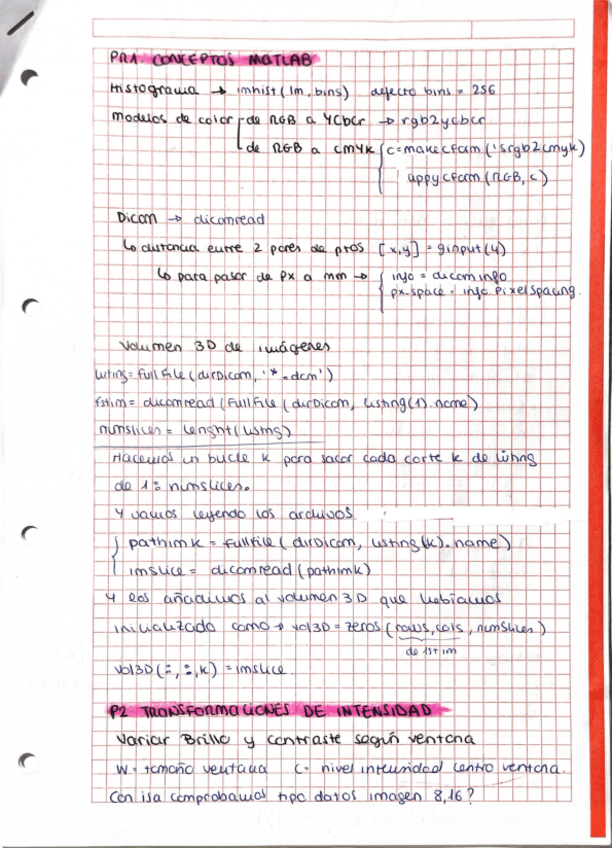 PR1. CONCEPTOS MATLAB
Histograma → imhist(Im, bins) defecto bins = 256
modelos de color de RGB a YCbCr → rgb2ycbcr
de RGB a CMYK c=makecform('srgb2cmyk)
appycform(RGB, c)
Dicom → dicomread
↳ distancia entre 2 pares de ptos [x,y] = ginput(4)
↳ para pasar de px a mm → info = dicominfo
px.space = info.PixelSpacing.
Volumen 3D de imágenes
listing= fullfile(dirDicom, '*.dcm')
fstim = dicomread(fullfile(dirDicom, listing(1).name)
numslices = lenght(listing)
Hacemos un bucle k para sacar cada corte k de listing
de 1: numslices.
Y vamos leyendo los archivos
pathimk = fullfile(dirDicom, listing(k).name)
imslice = dicomread(pathimk)
Y los añadimos al volumen 3D que habíamos
inicializado como → vol3D = zeros(rows, cols, numSlices)
de 1st im
vol3D(:,:,k) = imslice
P2 TRANSFORMACIONES DE INTENSIDAD
Variar Brillo y contraste según ventana
W = tamaño ventana C = nivel intensidad centro ventana.
Con isa comprobamos tipo datos imagen 8,16?